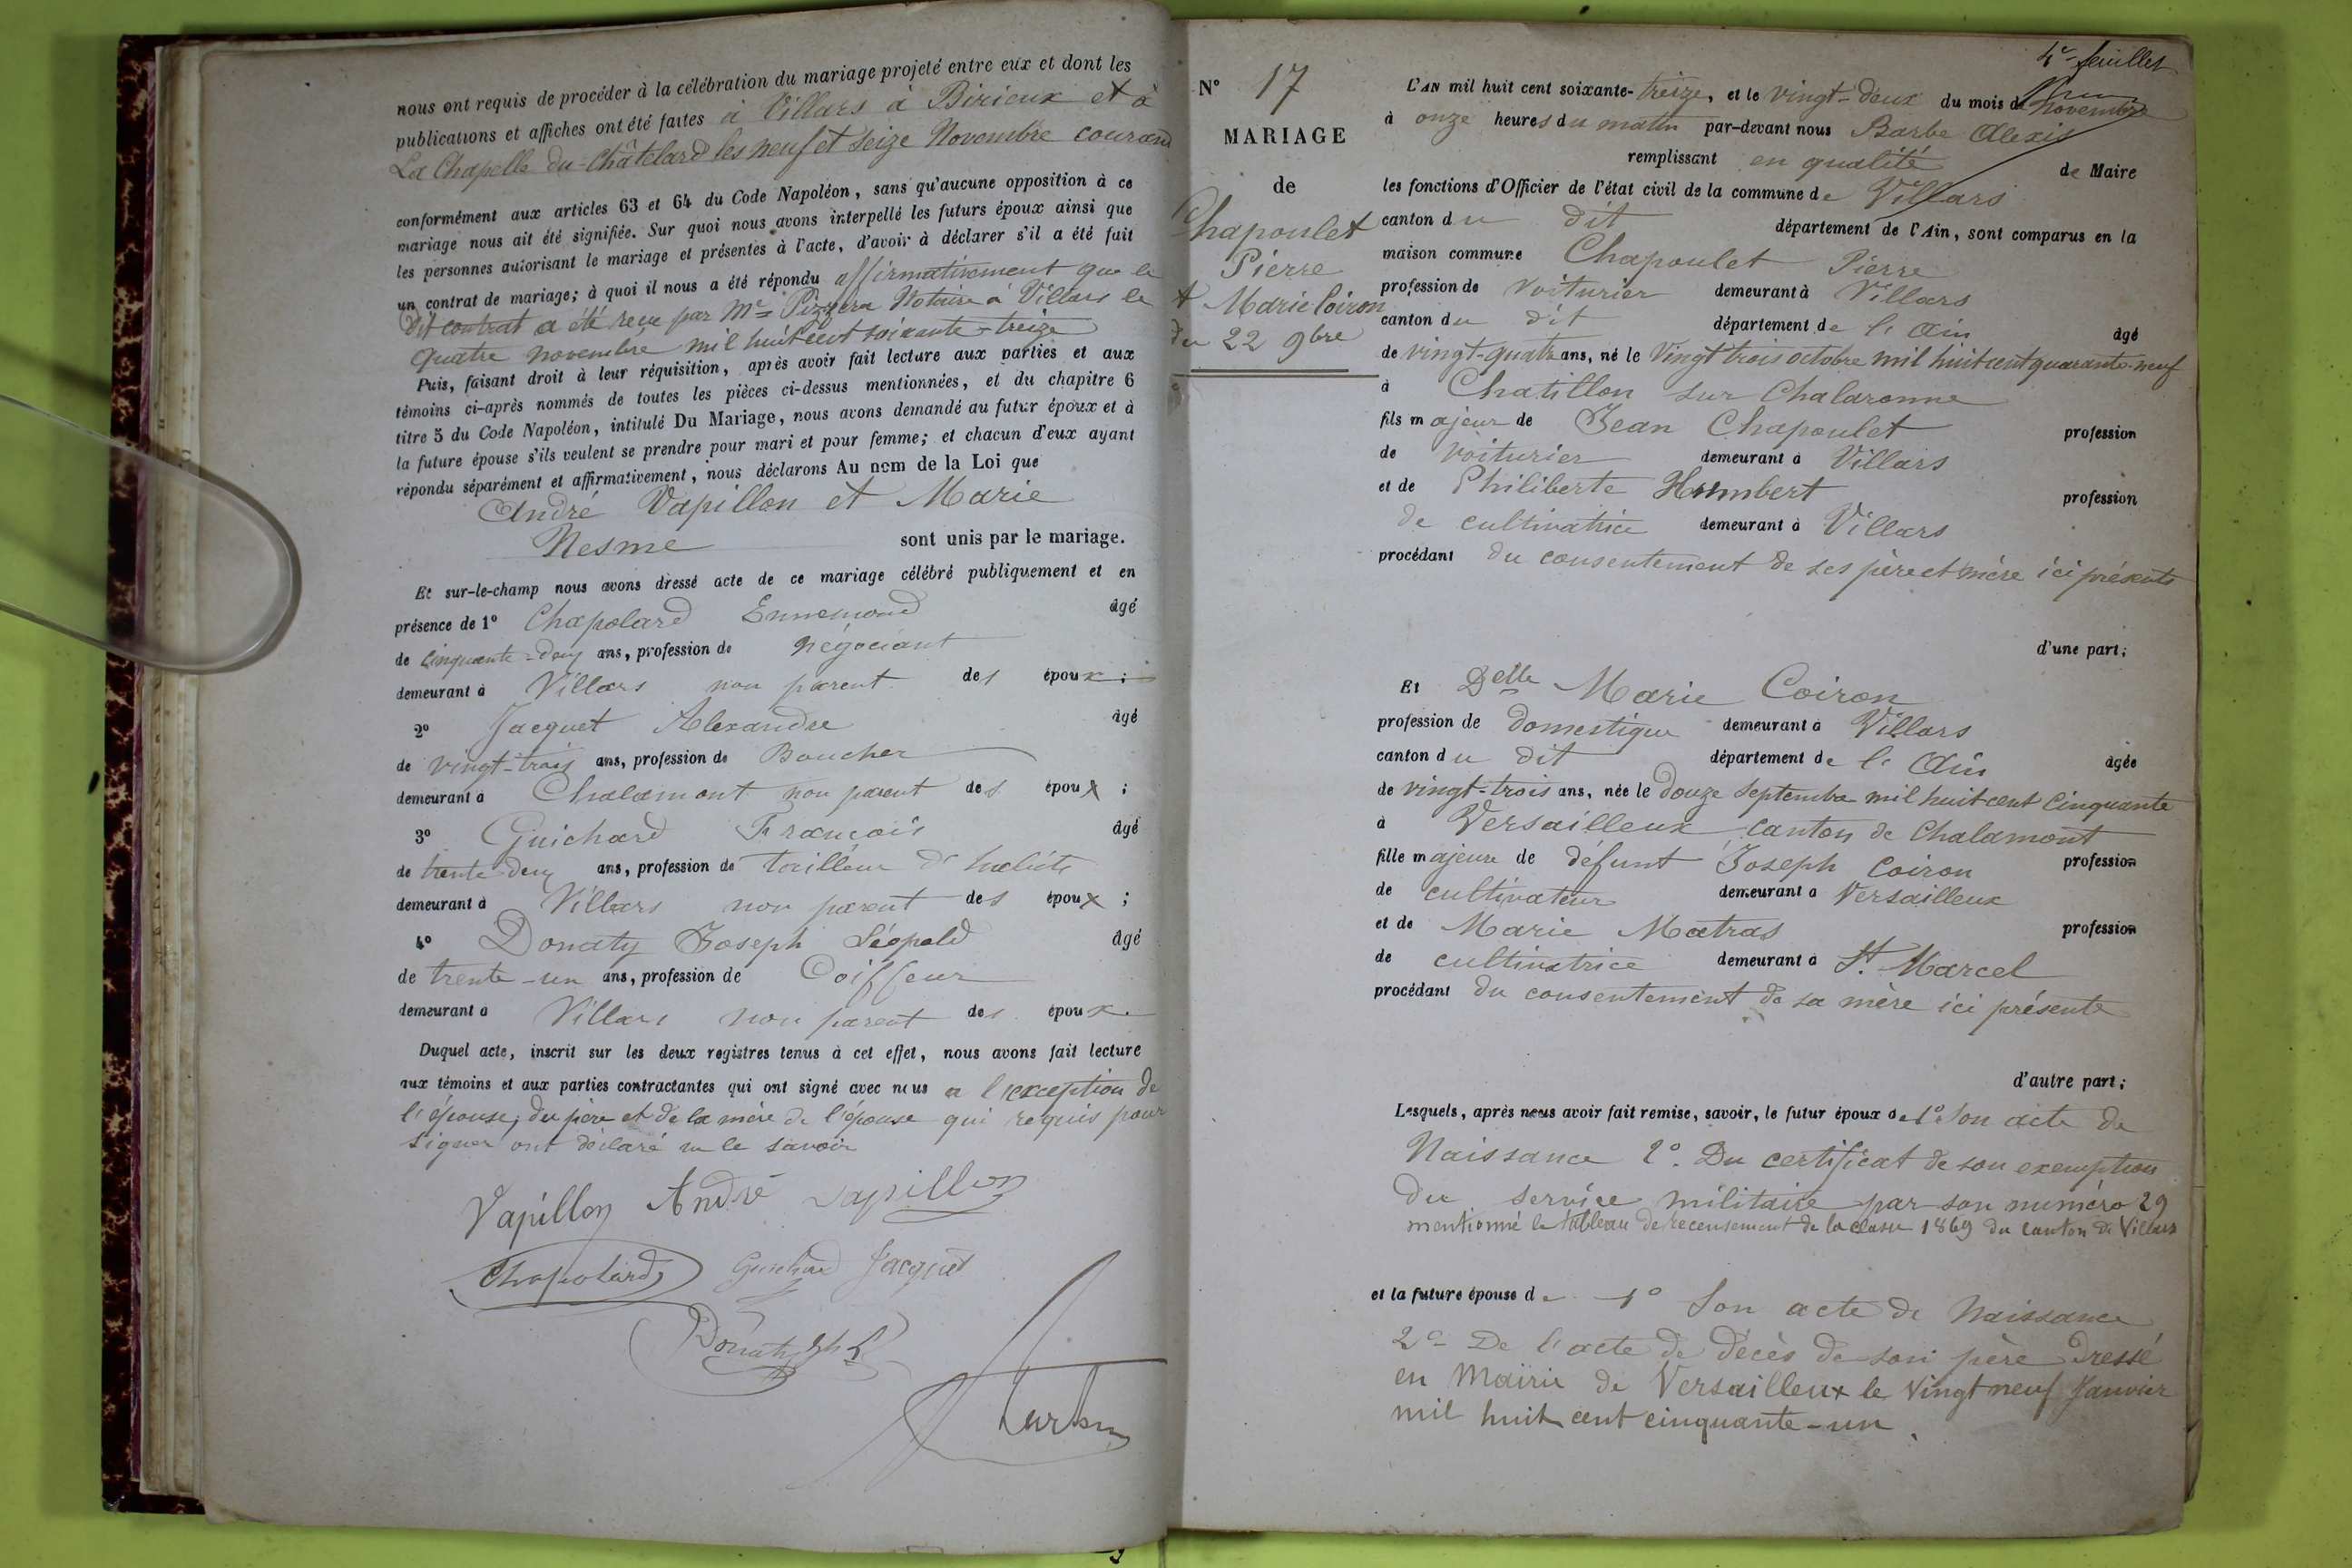 nous ont requis de procéder à la célébration du mariage projeté entre eux et dont les
publications et affiches ont été faites à Villars à Birieux et à
La Chapelle du Châtelard les neuf et seize Novembre courant
conformément aux articles 63 et 64 du Code Napoléon, sans qu'aucune opposition à ce
mariage nous ait été signifiée. Sur quoi nous avons interpellé les futurs époux ainsi que
les personnes autorisant le mariage et présentes à l'acte, d'avoir à déclarer s'il a été fait
un contrat de mariage; à quoi il nous a été répondu affirmativement que le
dit contrat a été reçu par Me Pizzera Notaire à Villars le
quatre novembre mil huit cent soixante-treize
Puis, faisant droit à leur réquisition, après avoir fait lecture aux parties et aux
témoins ci-après nommés de toutes les pièces ci-dessus mentionnées, et du chapitre 6
titre 5 du Code Napoléon, intitulé Du Mariage, nous avons demandé au futur époux et à
la future épouse s'ils veulent se prendre pour mari et pour femme; et chacun d'eux ayant
répondu séparément et affirmativement, nous déclarons Au nom de la Loi que
André Vapillon et Marie
Nesme sont unis par le mariage.
Et sur-le-champ nous avons dressé acte de ce mariage célébré publiquement et en
présence de 1° Chapolard Ennemond âgé
de cinquante-deux ans, profession de négociant
demeurant à Villars non parent des époux;
2° Jacquet Alexandre âgé
de vingt-trois ans, profession de Boucher
demeurant à Chalamont non parent des époux;
3° Guichard François âgé
de trente-deux ans, profession de tailleur d'habits
demeurant à Villars non parent des époux;
4° Donaty Joseph Léopold âgé
de trente-un ans, profession de Coiffeur
demeurant à Villars non parent des époux.
Duquel acte, inscrit sur les deux registres tenus à cet effet, nous avons fait lecture
aux témoins et aux parties contractantes qui ont signé avec nous a l'exception de
l'épouse, du père et de la mère de l'épouse qui requis pour
signer ont déclaré ne le savoir
Vapillon André Vapillon
Chapolard Guichard Jacquet
Donaty
Barbe
4e feuillet
N° 17
MARIAGE
de
Chapoulet
Pierre
et Marie Coiron
du 22 9bre
L'AN mil huit cent soixante-treize, et le vingt-deux du mois de Novembre
à onze heures du matin par-devant nous Barbe Alexis
remplissant en qualité de Maire
les fonctions d'Officier de l'état civil de la commune de Villars
canton du dit département de l'Ain, sont comparus en la
maison commune Chapoulet Pierre
profession de Voiturier demeurant à Villars
canton du dit département de l'Ain âgé
de vingt-quatre ans, né le Vingt trois octobre mil huit cent quarante-neuf
à Chatillon sur Chalaronne
fils majeur de Jean Chapoulet profession
de voiturier demeurant à Villars
et de Philiberte Humbert profession
de cultivatrice demeurant à Villars
procédant du consentement de ses père et mère ici présents
d'une part;
Et Delle Marie Coiron
profession de domestique demeurant à Villars
canton du dit département de l'Ain âgée
de vingt-trois ans, née le douze septembre mil huit cent cinquante
à Versailleux canton de Chalamont
fille majeure de défunt Joseph Coiron profession
de cultivateur demeurant à Versailleux
et de Marie Matras profession
de cultivatrice demeurant à St Marcel
procédant du consentement de sa mère ici présente
d'autre part;
Lesquels, après nous avoir fait remise, savoir, le futur époux de 1° Son acte de
Naissance 2°. Du certificat de son exemption
du service militaire par son numéro 29
mentionné le tableau de recensement de la classe 1869 du canton de Villars
et la future épouse de 1° Son acte de Naissance
2° De l'acte de décès de son père dressé
en Mairie de Versailleux le vingt neuf Janvier
mil huit cent cinquante-un.